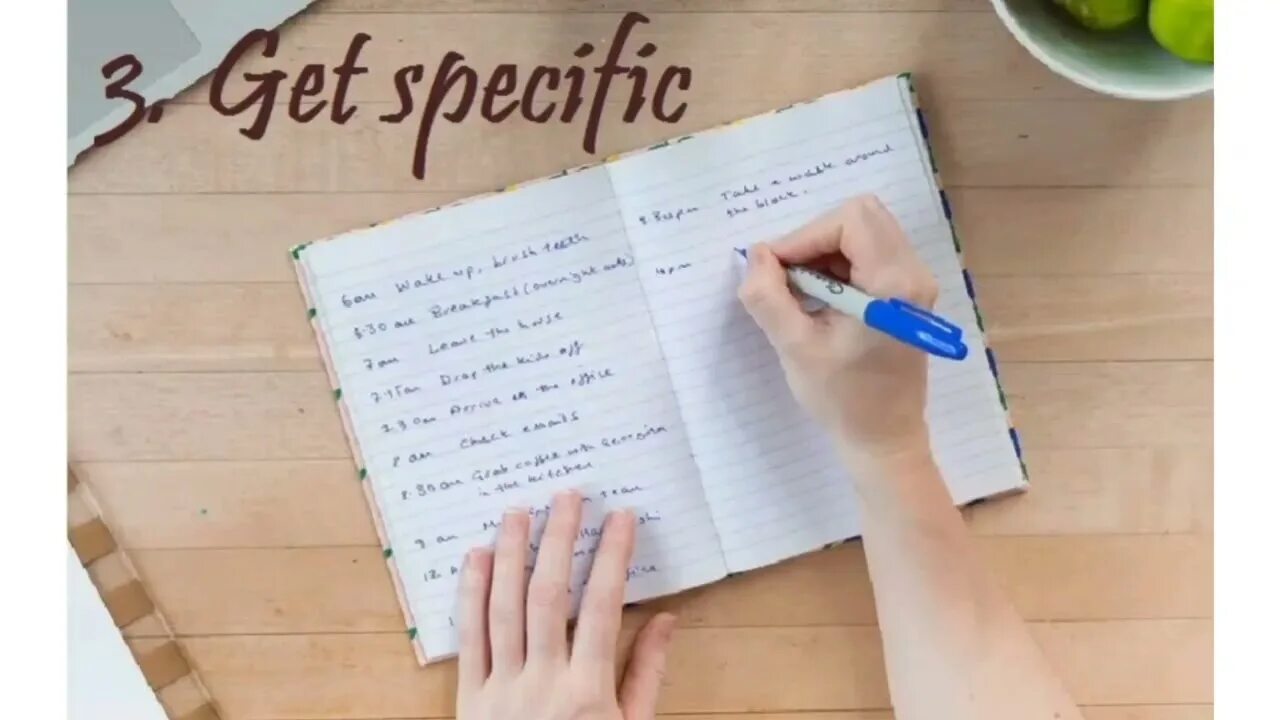 3. Get specific
6am Wake up, brush teeth
6.30 am Breakfast (overnight oats)
7 am Leave the house
7.15am Drop the kids off
7.30 am Arrive at the office
8 am Check emails
8.30 am Grab coffee with Georgina
in the kitchen
9 am team
12
3.30pm Take a walk around
the block.
4pm